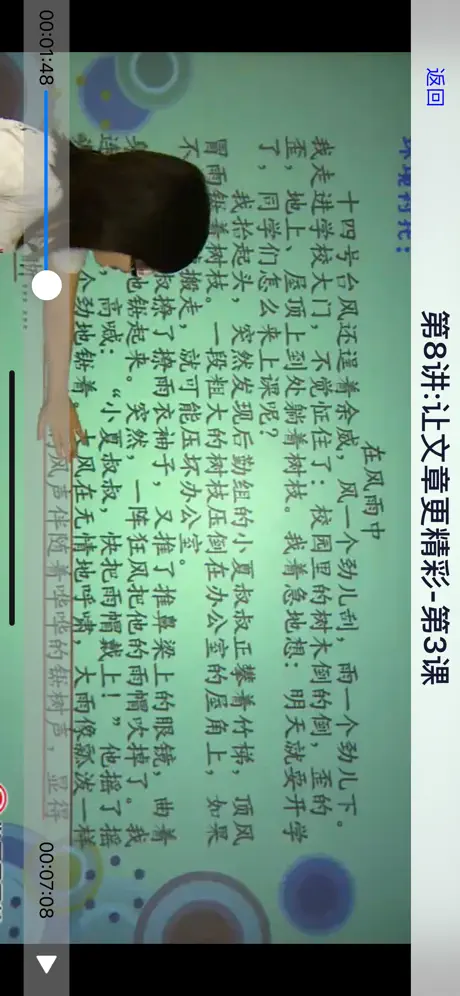 返回
第8讲:让文章更精彩-第3课
环境衬托：
在风雨中
十四号台风还逞着余威，风一个劲儿刮，雨一个劲儿下。
我走进学校大门，不觉怔住了：校园里的树木倒的倒，歪的
歪，地上、屋顶上到处躺着树枝。我着急地想：明天就要开学
了，同学们怎么来上课呢？
我抬起头，突然发现后勤组的小夏叔叔正攀着竹梯，顶风
冒雨锯着树枝。一段粗大的树枝压倒在办公室的屋角上，如果
不 搬走，就可能压坏办公室。
叔撩了撩雨衣袖子，又推了推鼻梁上的眼镜，曲着
身 地锯起来。突然，一阵狂风把他的雨帽吹掉了。我
连 高喊：“小夏叔叔，快把雨帽戴上！”他摇了摇
个劲地锯着 大风在无情地呼啸 大雨像瓢泼一样
风声伴随着哗哗的锯树声，显得
……
00:01:48
00:07:08